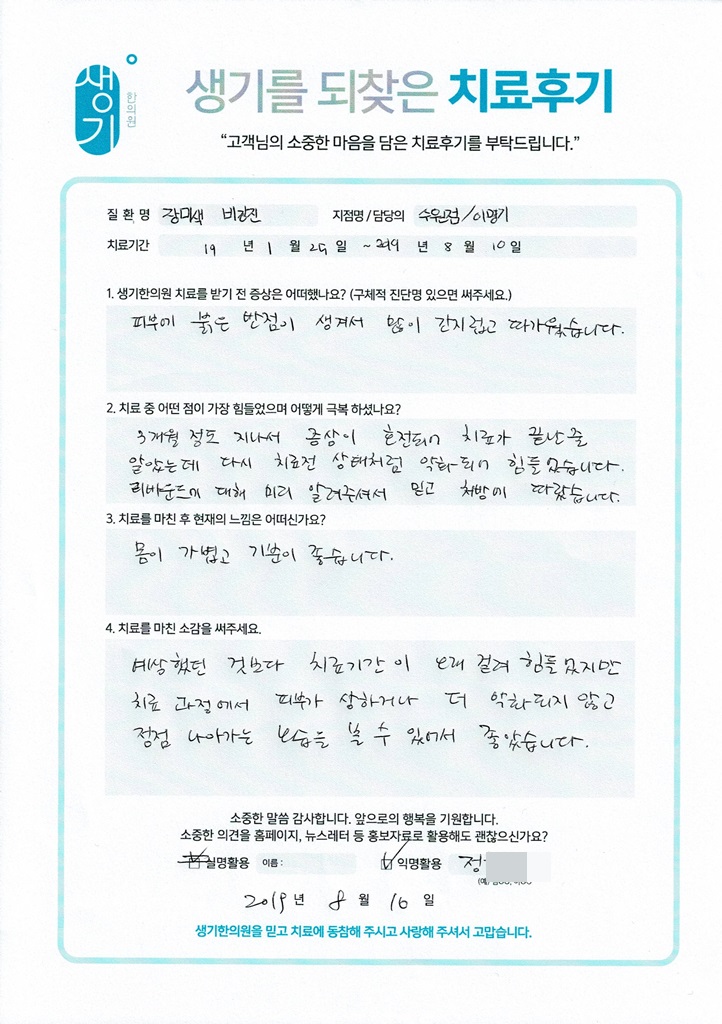 생기
한의원
생기를 되찾은 치료후기
“고객님의 소중한 마음을 담은 치료후기를 부탁드립니다.”
질 환 명 장미색 비강진 지점명 / 담당의 수원점/이명기
치료기간 19 년 1 월 25 일 ~ 2019 년 8 월 10 일
1. 생기한의원 치료를 받기 전 증상은 어떠했나요? (구체적 진단명 있으면 써주세요.)
피부에 붉은 반점이 생겨서 많이 간지럽고 따가웠습니다.
2. 치료 중 어떤 점이 가장 힘들었으며 어떻게 극복 하셨나요?
3개월 정도 지나서 증상이 호전되어 치료가 끝난줄
알았는데 다시 치료전 상태처럼 악화되어 힘들었습니다.
리바운드에 대해 미리 알려주셔서 믿고 처방에 따랐습니다.
3. 치료를 마친 후 현재의 느낌은 어떠신가요?
몸이 가볍고 기분이 좋습니다.
4. 치료를 마친 소감을 써주세요.
예상했던 것보다 치료기간이 오래 걸려 힘들었지만
치료 과정에서 피부가 상하거나 더 악화되지 않고
점점 나아가는 모습을 볼 수 있어서 좋았습니다.
소중한 말씀 감사합니다. 앞으로의 행복을 기원합니다.
소중한 의견을 홈페이지, 뉴스레터 등 홍보자료로 활용해도 괜찮으신가요?
실명활용 이름 : 익명활용 정
2019 년 8 월 16 일
생기한의원을 믿고 치료에 동참해 주시고 사랑해 주셔서 고맙습니다.